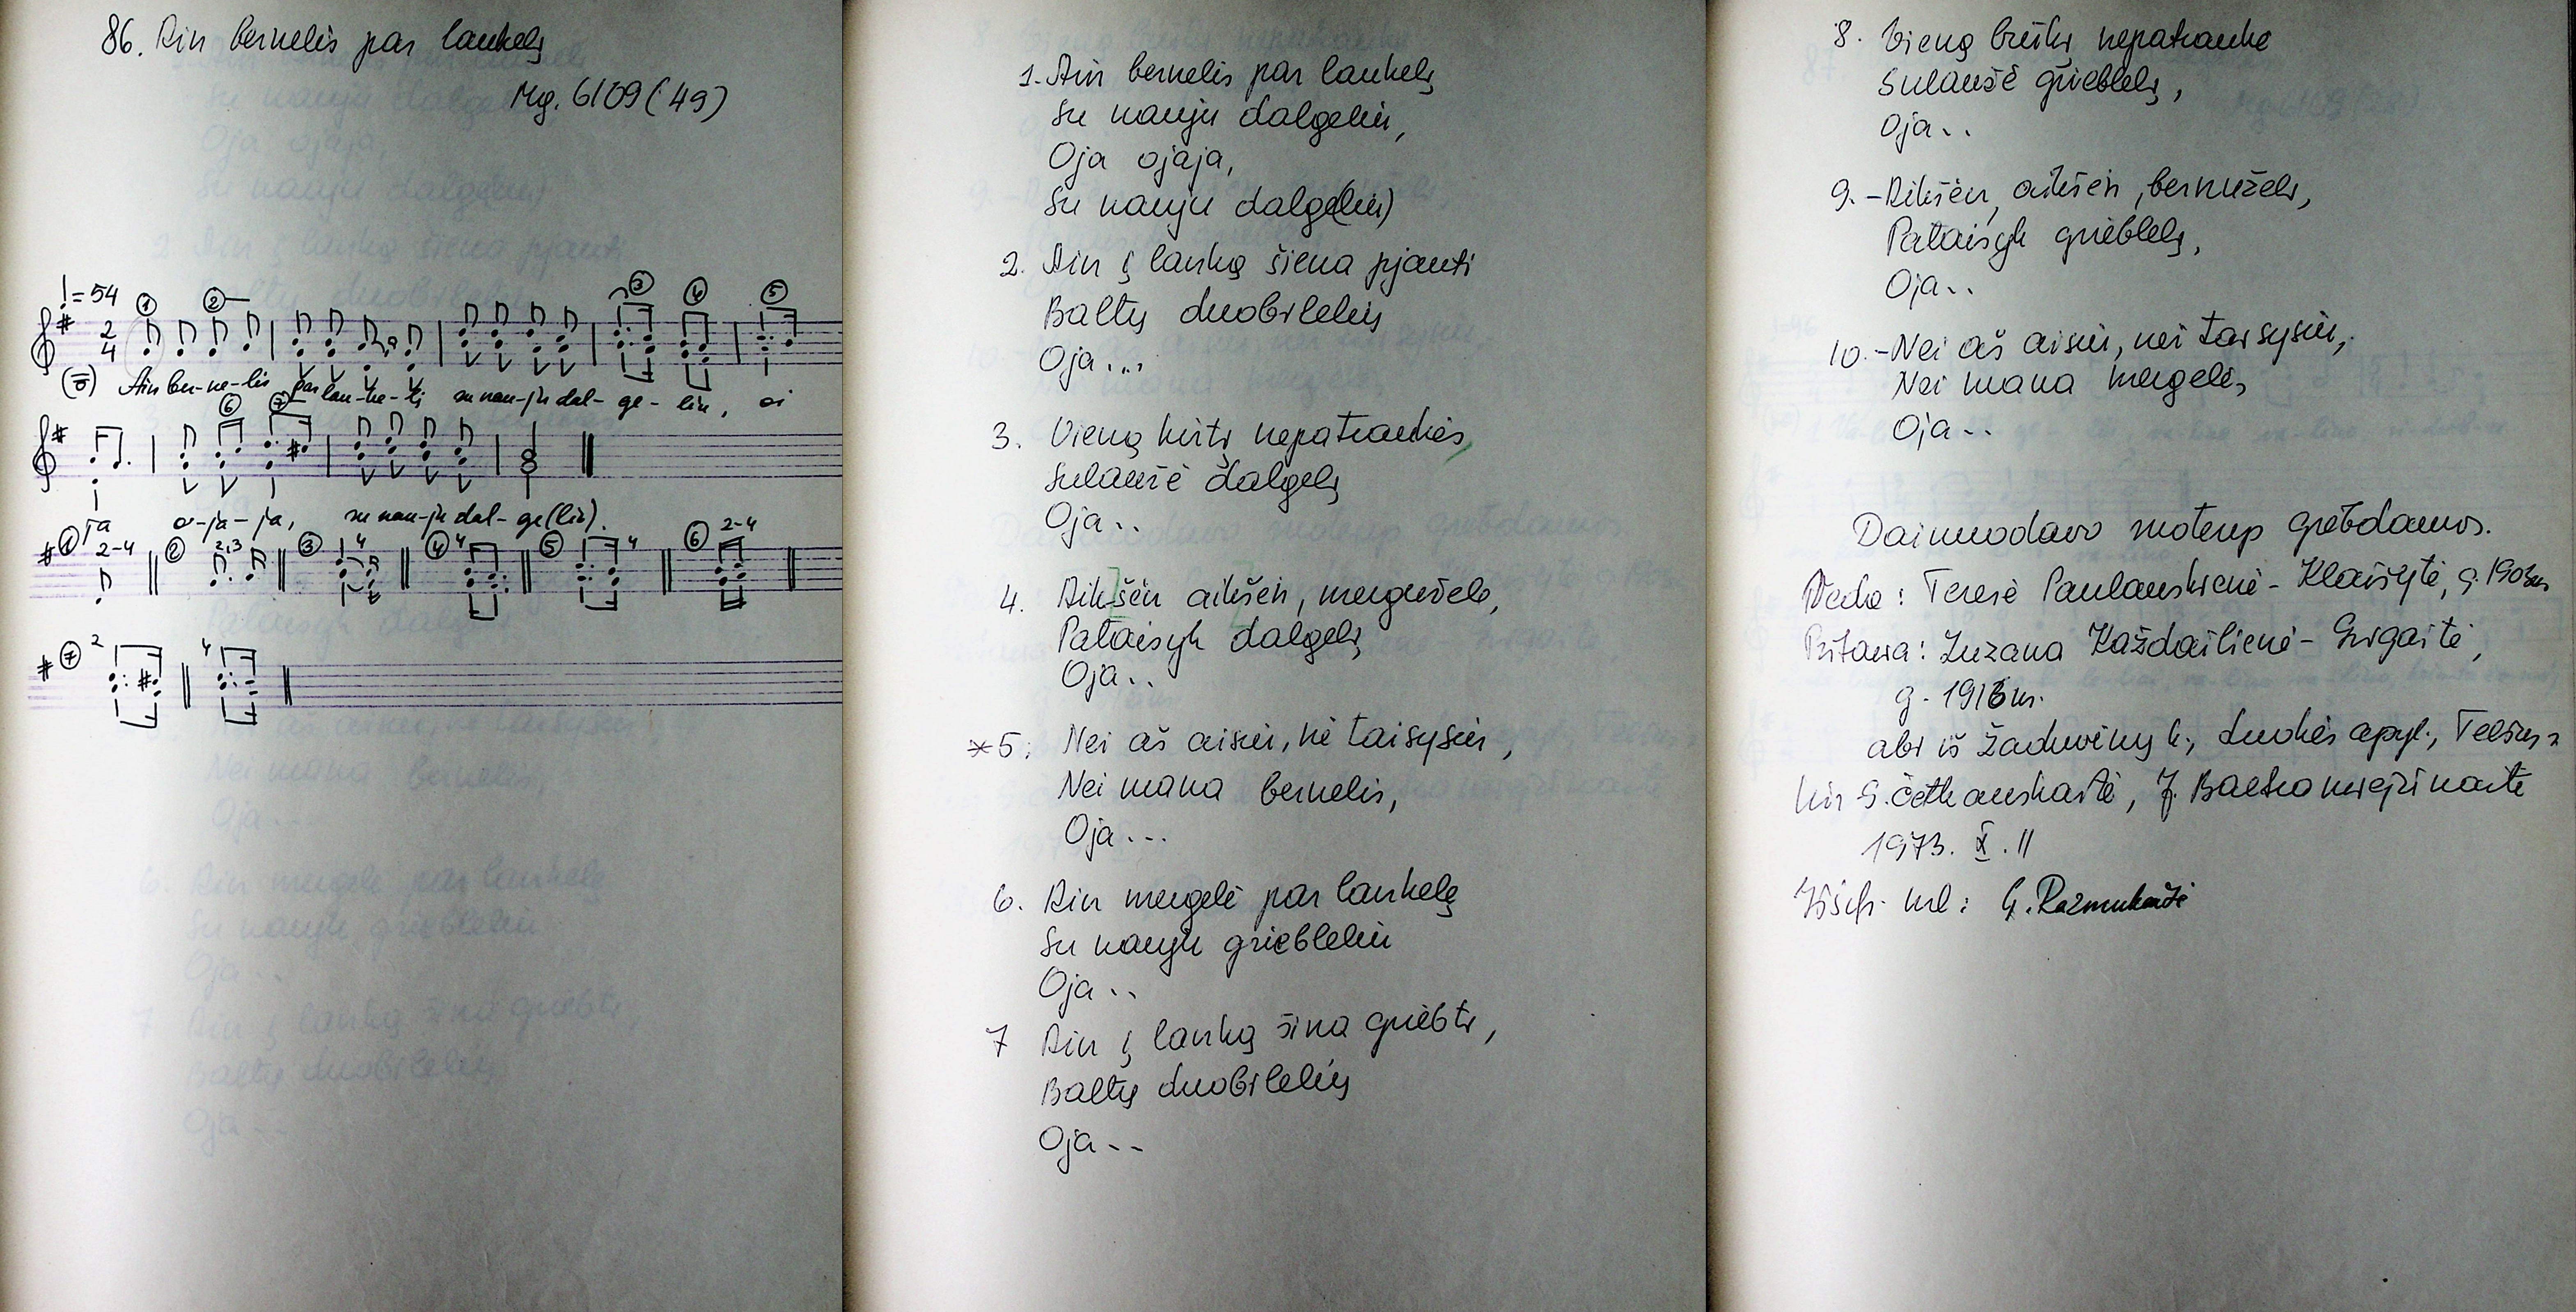 86. Ain bernelis par laukelį
Mg. 6109(49)
♩=54 ① ② ③ ④ ⑤
2/4
Ain ber-ne-lis par lau-ke-lį su nau-ju dal-ge-liu, oi
⑥ ⑦
ja o-ja-ja, su nau-ju dal-ge(liu).
① 2-4 ② 2,3 ③ 4 ④ 4 ⑤ 4 ⑥ 2-4
⑦ 2 4
1. Ain bernelis par laukelį
Su nauju dalgeliu,
Oja ojaja,
Su nauju dalge(liu)
2. Ain į lanką šiena pjauti
Baltų duobilelių
Oja...
3. Vieną kirtį nepatraukės,
Sulaužė dalgelį
Oja..
4. Aikšėn aikšėn, mergužele,
Pataisyk dalgelį
Oja..
*5. Nei aš aisiu, nė taisysiu,
Nei mana bernelis,
Oja...
6. Ain mergelė par laukelį
Su nauju griebleliu
Oja..
7 Ain į lanką šina griebti,
Baltų duobilelių
Oja..
8. Vieną brūkį nepatraukė
Sulaužė grieblelį,
Oja..
9. - Aikšėn, aikšėn, bernuželi,
Pataisyk grieblelį,
Oja..
10. - Nei aš aisiu, nei taisysiu,
Nei mana mergelė,
Oja..
Dainuodavo moterys grėbdamos.
Veda: Teresė Paulauskienė - Klaišytė, g. 1903 m.
Pritaria: Zuzana Každailienė - Grigaitė,
g. 1918 m.
abi iš Žadvainų k., apyl., Telšių r.
G. Četkauskaitė, J.
1973. X. 11
Iššifr. mel: G. Razmukaitė